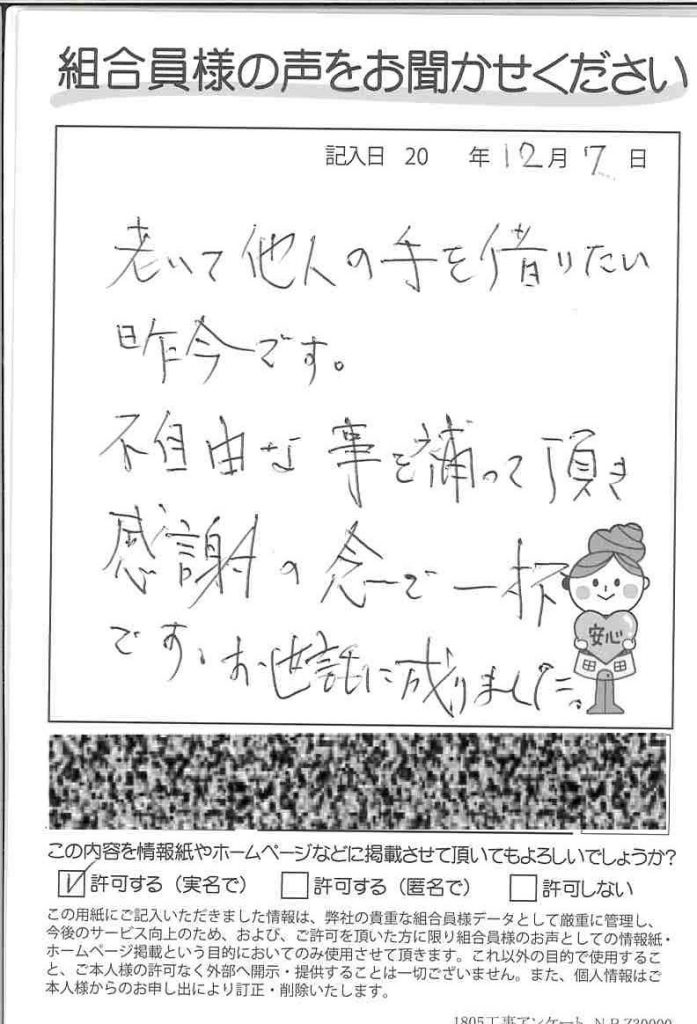 組合員様の声をお聞かせください
記入日 20 年 12月 7日
老いて他人の手を借りたい
昨今です。
不自由な事を補って頂き
感謝の念で一杯
です、お世話に成りました。
安心
この内容を情報紙やホームページなどに掲載させて頂いてもよろしいでしょうか?
許可する（実名で） 許可する（匿名で） 許可しない
この用紙にご記入いただきました情報は、弊社の貴重な組合員様データとして厳重に管理し、
今後のサービス向上のため、および、ご許可を頂いた方に限り組合員様のお声としての情報紙・
ホームページ掲載という目的においてのみ使用させて頂きます。これ以外の目的で使用するこ
と、ご本人様の許可なく外部へ開示・提供することは一切ございません。また、個人情報はご
本人様からのお申し出により訂正・削除いたします。
1805工事アンケート